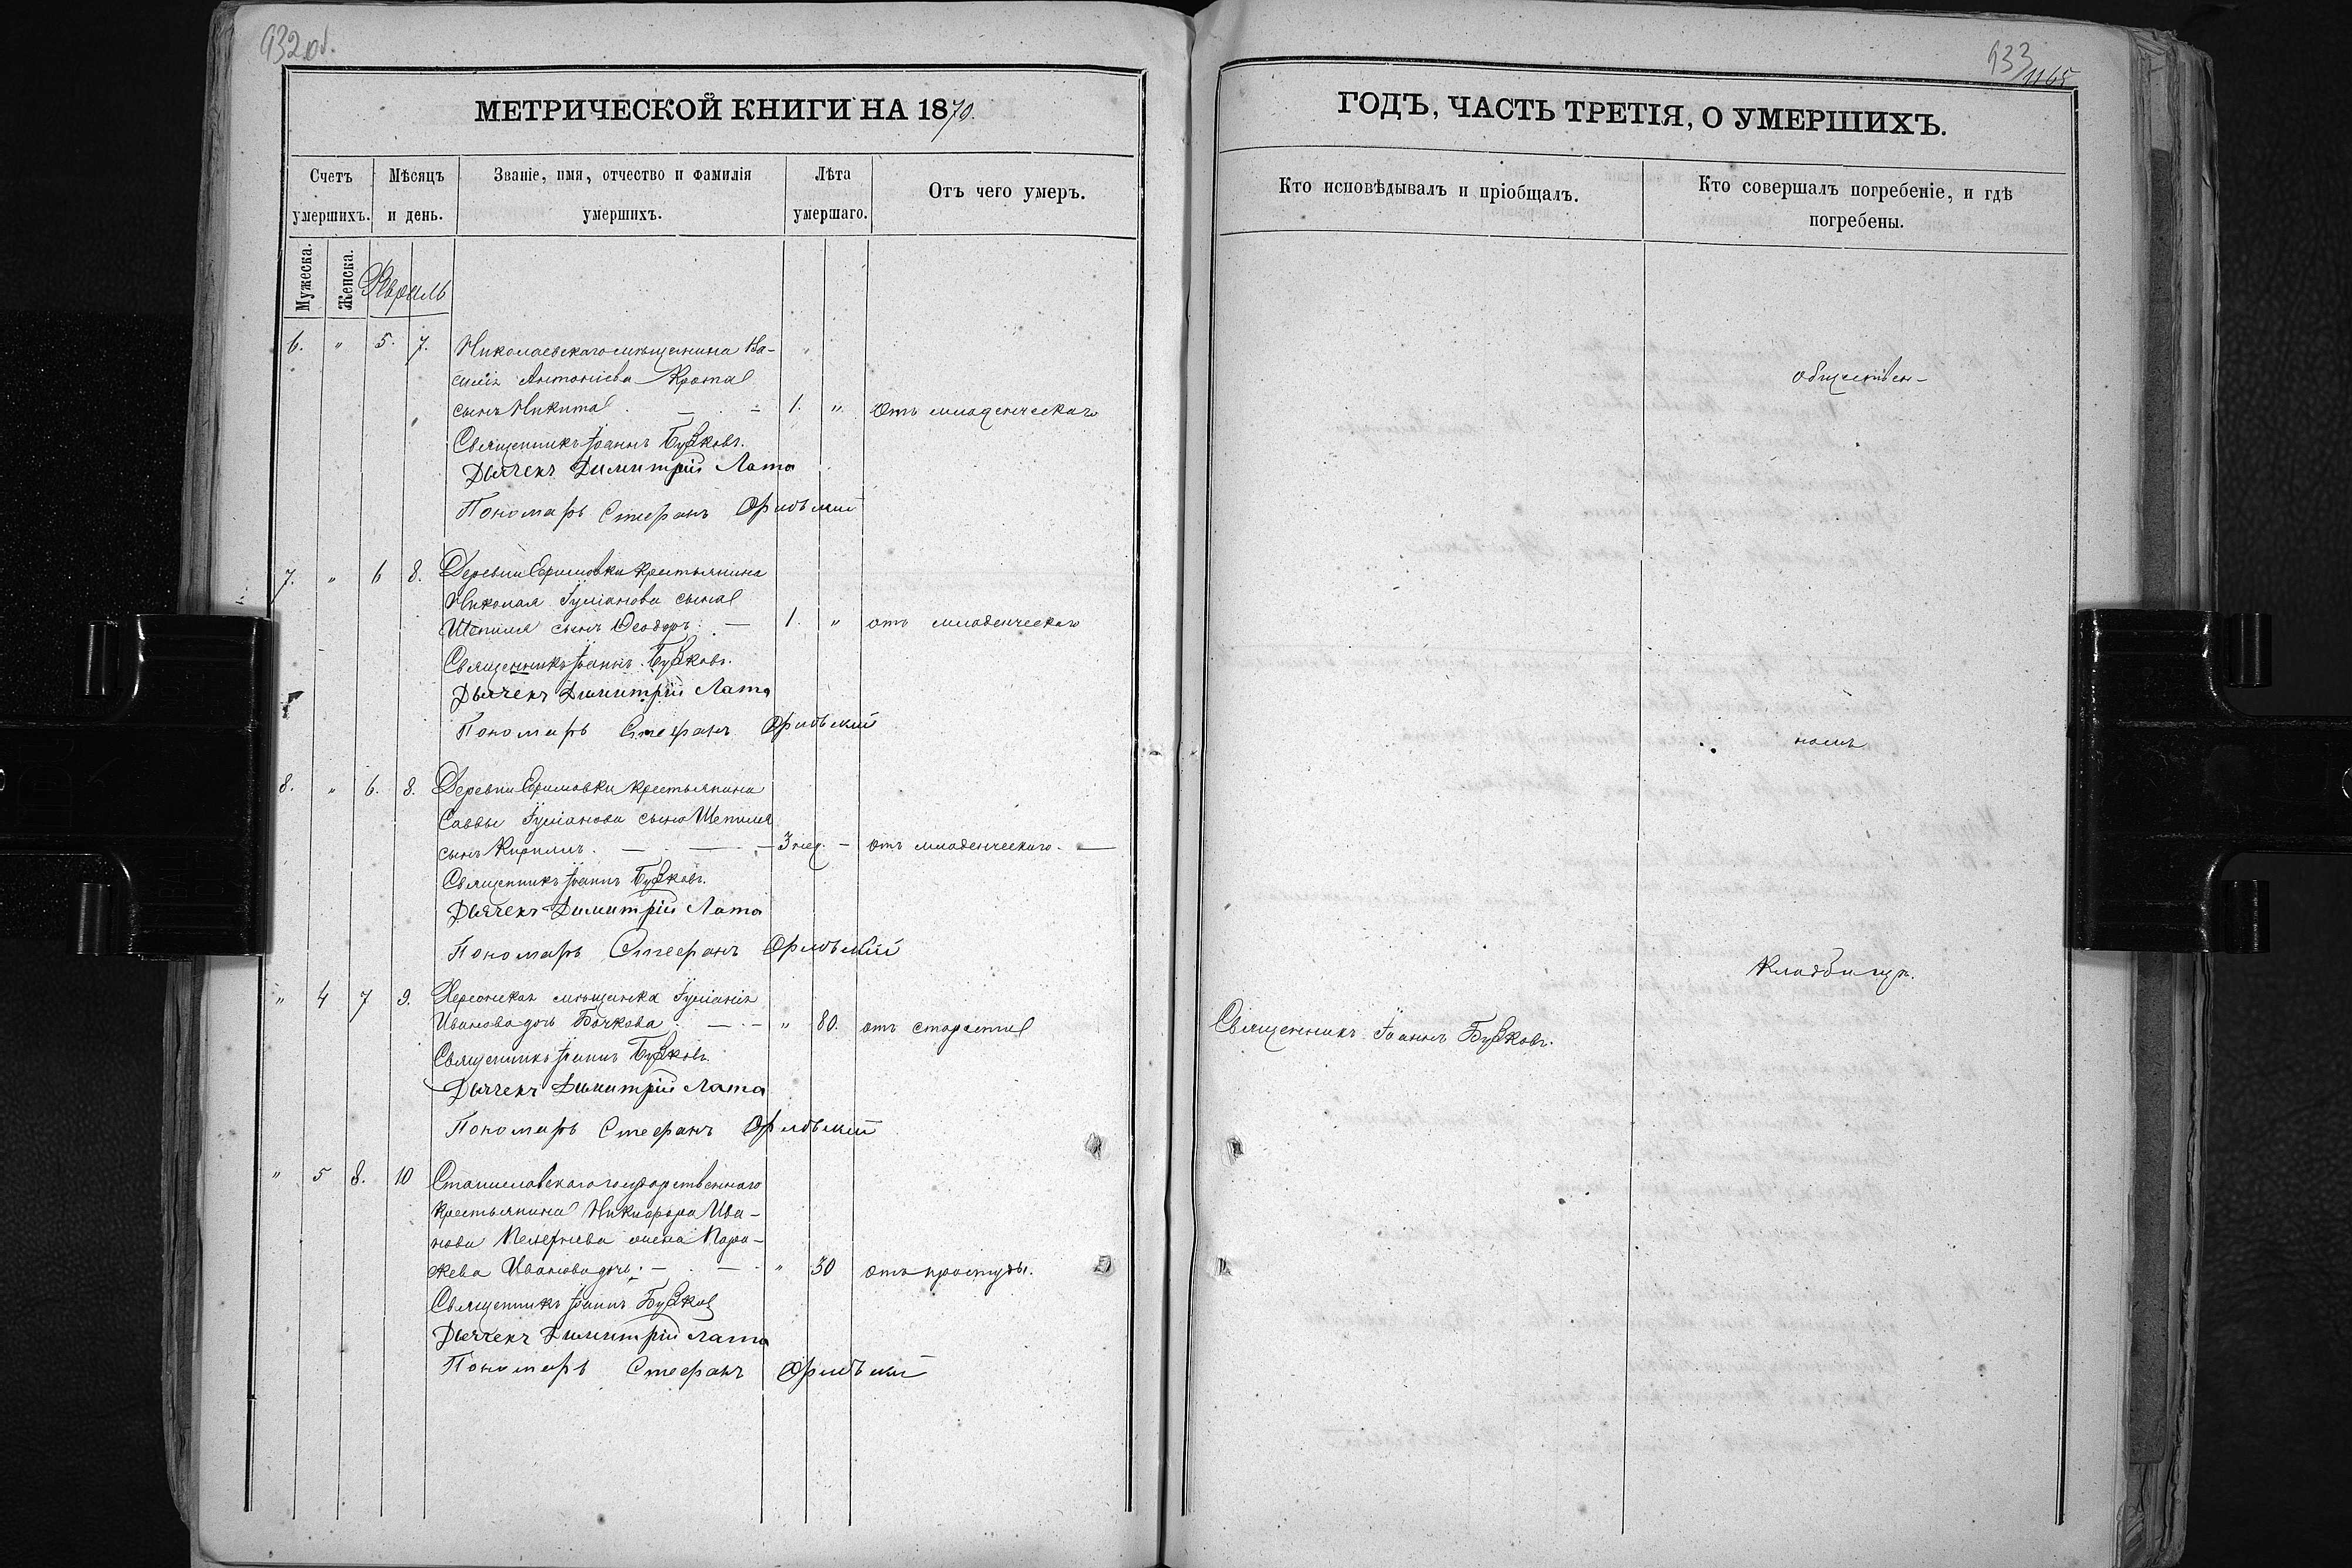 932 об.
МЕТРИЧЕСКОЙ КНИГИ НА 1870.
Счетъ умершихъ.
Мѣсяцъ и день.
Званіе, имя, отчество и фамилія умершихъ.
Лѣта умершаго.
Отъ чего умеръ.
Мужеска.
Женска.
Апрѣль
6. " 5. 7. Николаевскаго мѣщанина Ва-
силія Антоніева Крота
сынъ Никита 1. " Отъ младенческаго
Священникъ Іоаннъ
Дьячекъ Димитрій Лата
Пономарь Стефанъ
7. " 6 8. Деревни Ефимовки крестьянина
Николая Іуліанова сына
Шепиля сынъ Ѳеодоръ. 1. " отъ младенческаго
Священникъ Іоаннъ
Дьячекъ Димитрій Лата
Пономарь Стефанъ
8. " 6. 8. Деревни Ефимовки крестьянина
Саввы Іуліанова сына Шепиля
сынъ Кириллъ. 3 нед. отъ младенческаго.
Священникъ Іоаннъ
Дьячекъ Димитрій Лата
Пономарь Стефанъ
" 4 7 9. Херсонская мѣщанка Іуліанія
Иванова дочь Бочкова " 80. отъ старости
Священникъ Іоаннъ
Дьячекъ Димитрій Лата
Пономарь Стефанъ
" 5 8. 10 Станиславскаго государственнаго
крестьянина Никифора Ива-
нова жена Пара-
скева Иванова дочь. " 30 отъ простуды.
Священникъ Іоаннъ
Дьячекъ Димитрій Лата
Пономарь Стефанъ
933
1165
ГОДЪ, ЧАСТЬ ТРЕТІЯ, О УМЕРШИХЪ.
Кто исповѣдывалъ и пріобщалъ.
Кто совершалъ погребеніе, и гдѣ
погребены.
обществен-
номъ
кладбищѣ.
Священникъ Іоаннъ